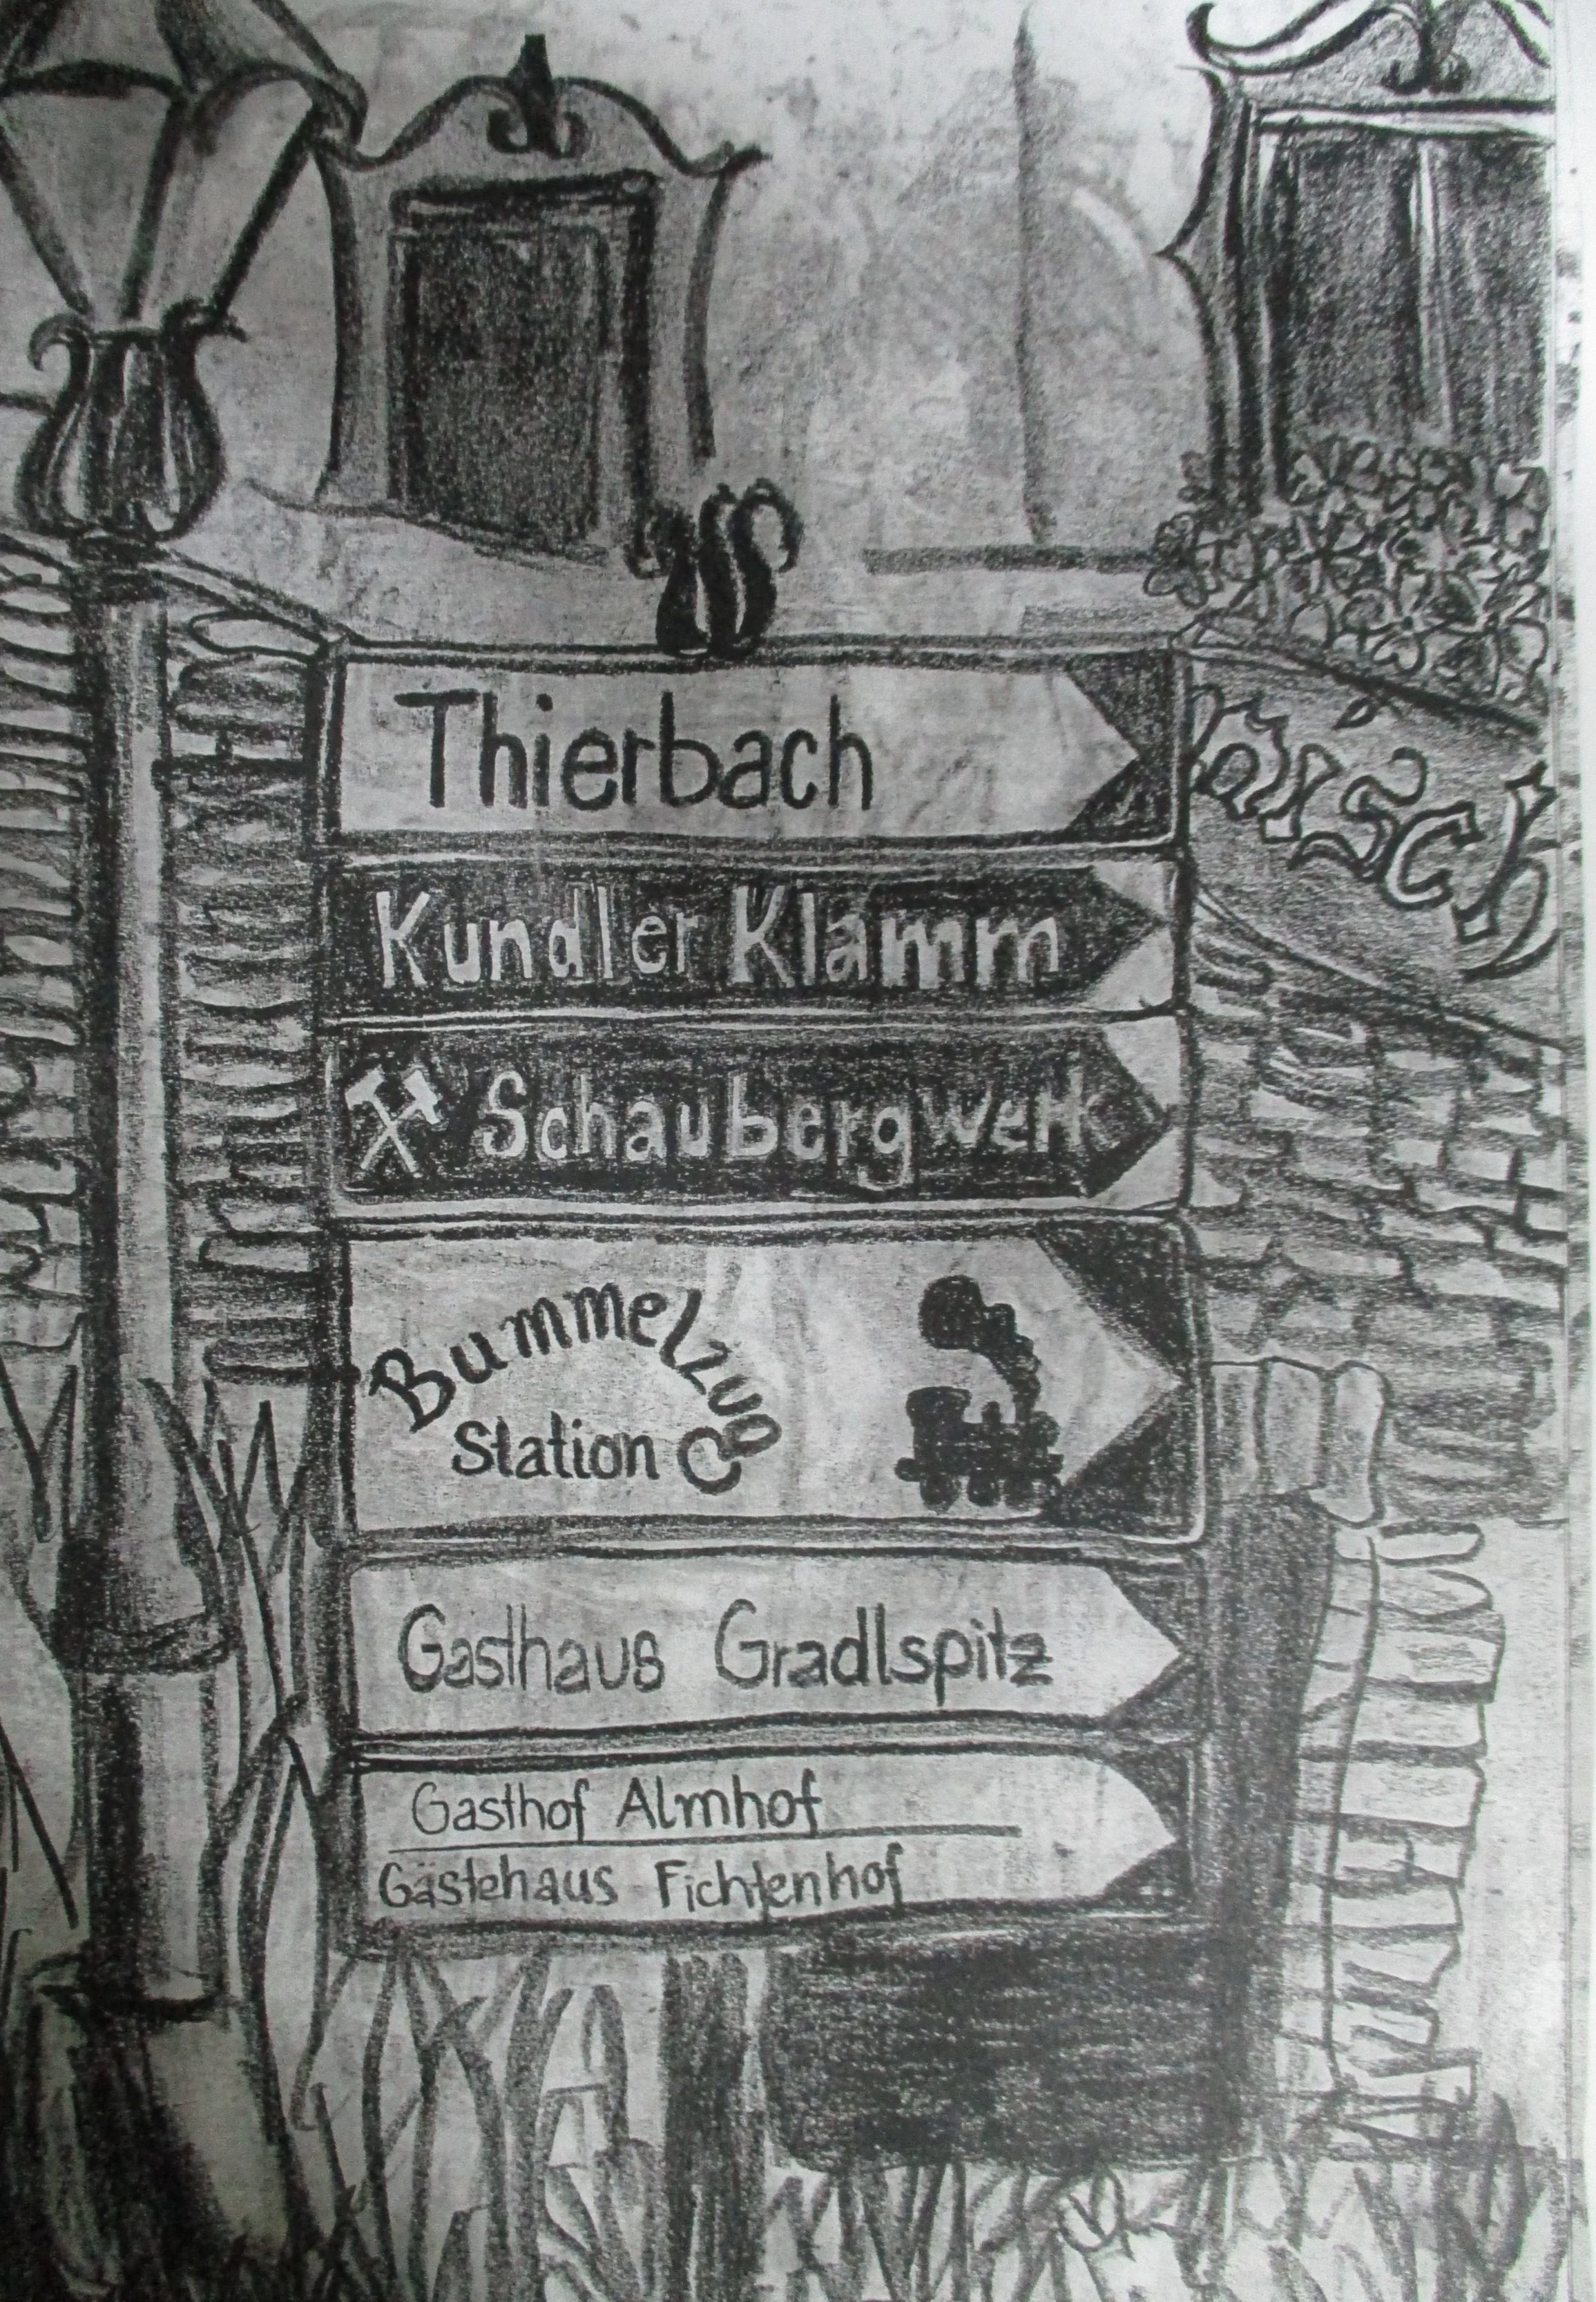 Thierbach
Kundler Klamm
Schaubergwerk
Bummelzug
Station
Gasthaus Gradlspitz
Gasthof Almhof
Gästehaus Fichtenhof